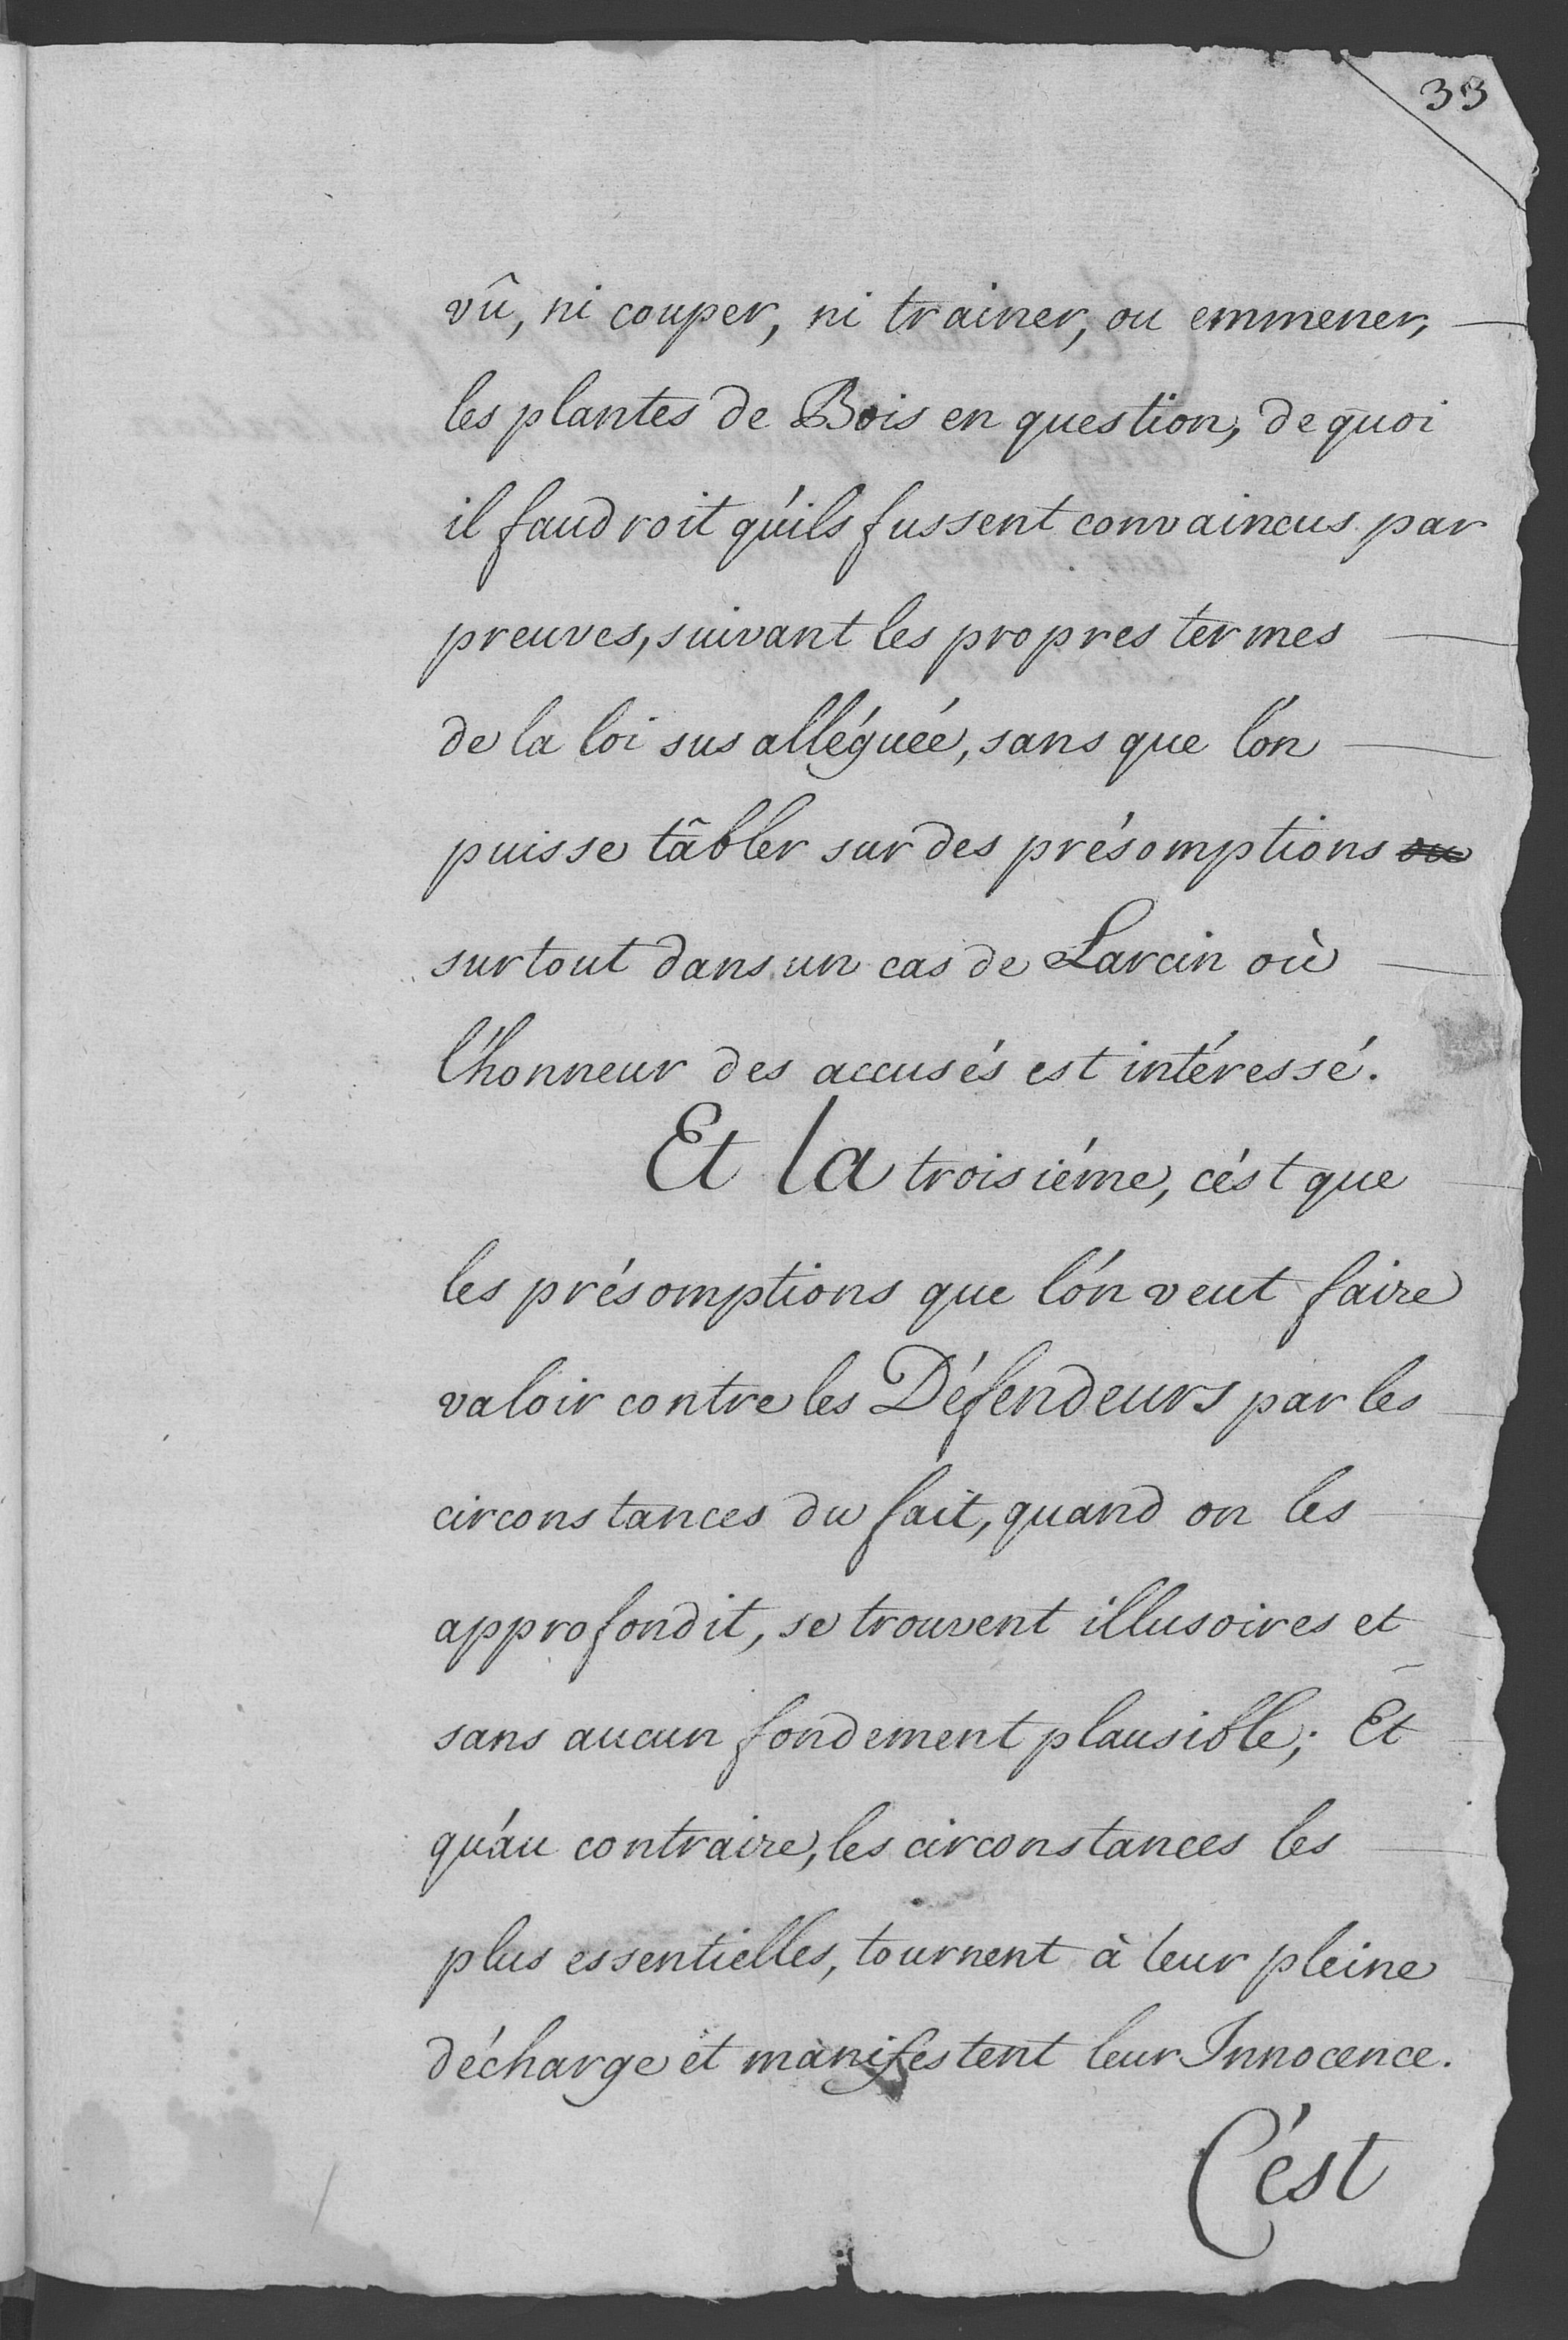 33
vû, ni couper, ni trainer, ou emmener,
les plantes de Bois en question, de quoi
il faudroit qu'ils fussent convaincus par
preuves, suivant les propres termes
de la loi sus alléguée, sans que l'on
puisse tâbler sur des présomptions ou
surtout dans un cas de Larcin où
l'honneur des accusés est intéressé.
Et la troisiéme, c'est que
les présomptions que l'on veut faire
valoir contre les Défendeurs par les
circonstances du fait, quand on les
approfondit, se trouvent illusoires et
sans aucun fondement plausible; Et
qu'au contraire, les circonstances les
plus essentielles, tournent à leur pleine
décharge et manifestent leur Innocence.
C'est